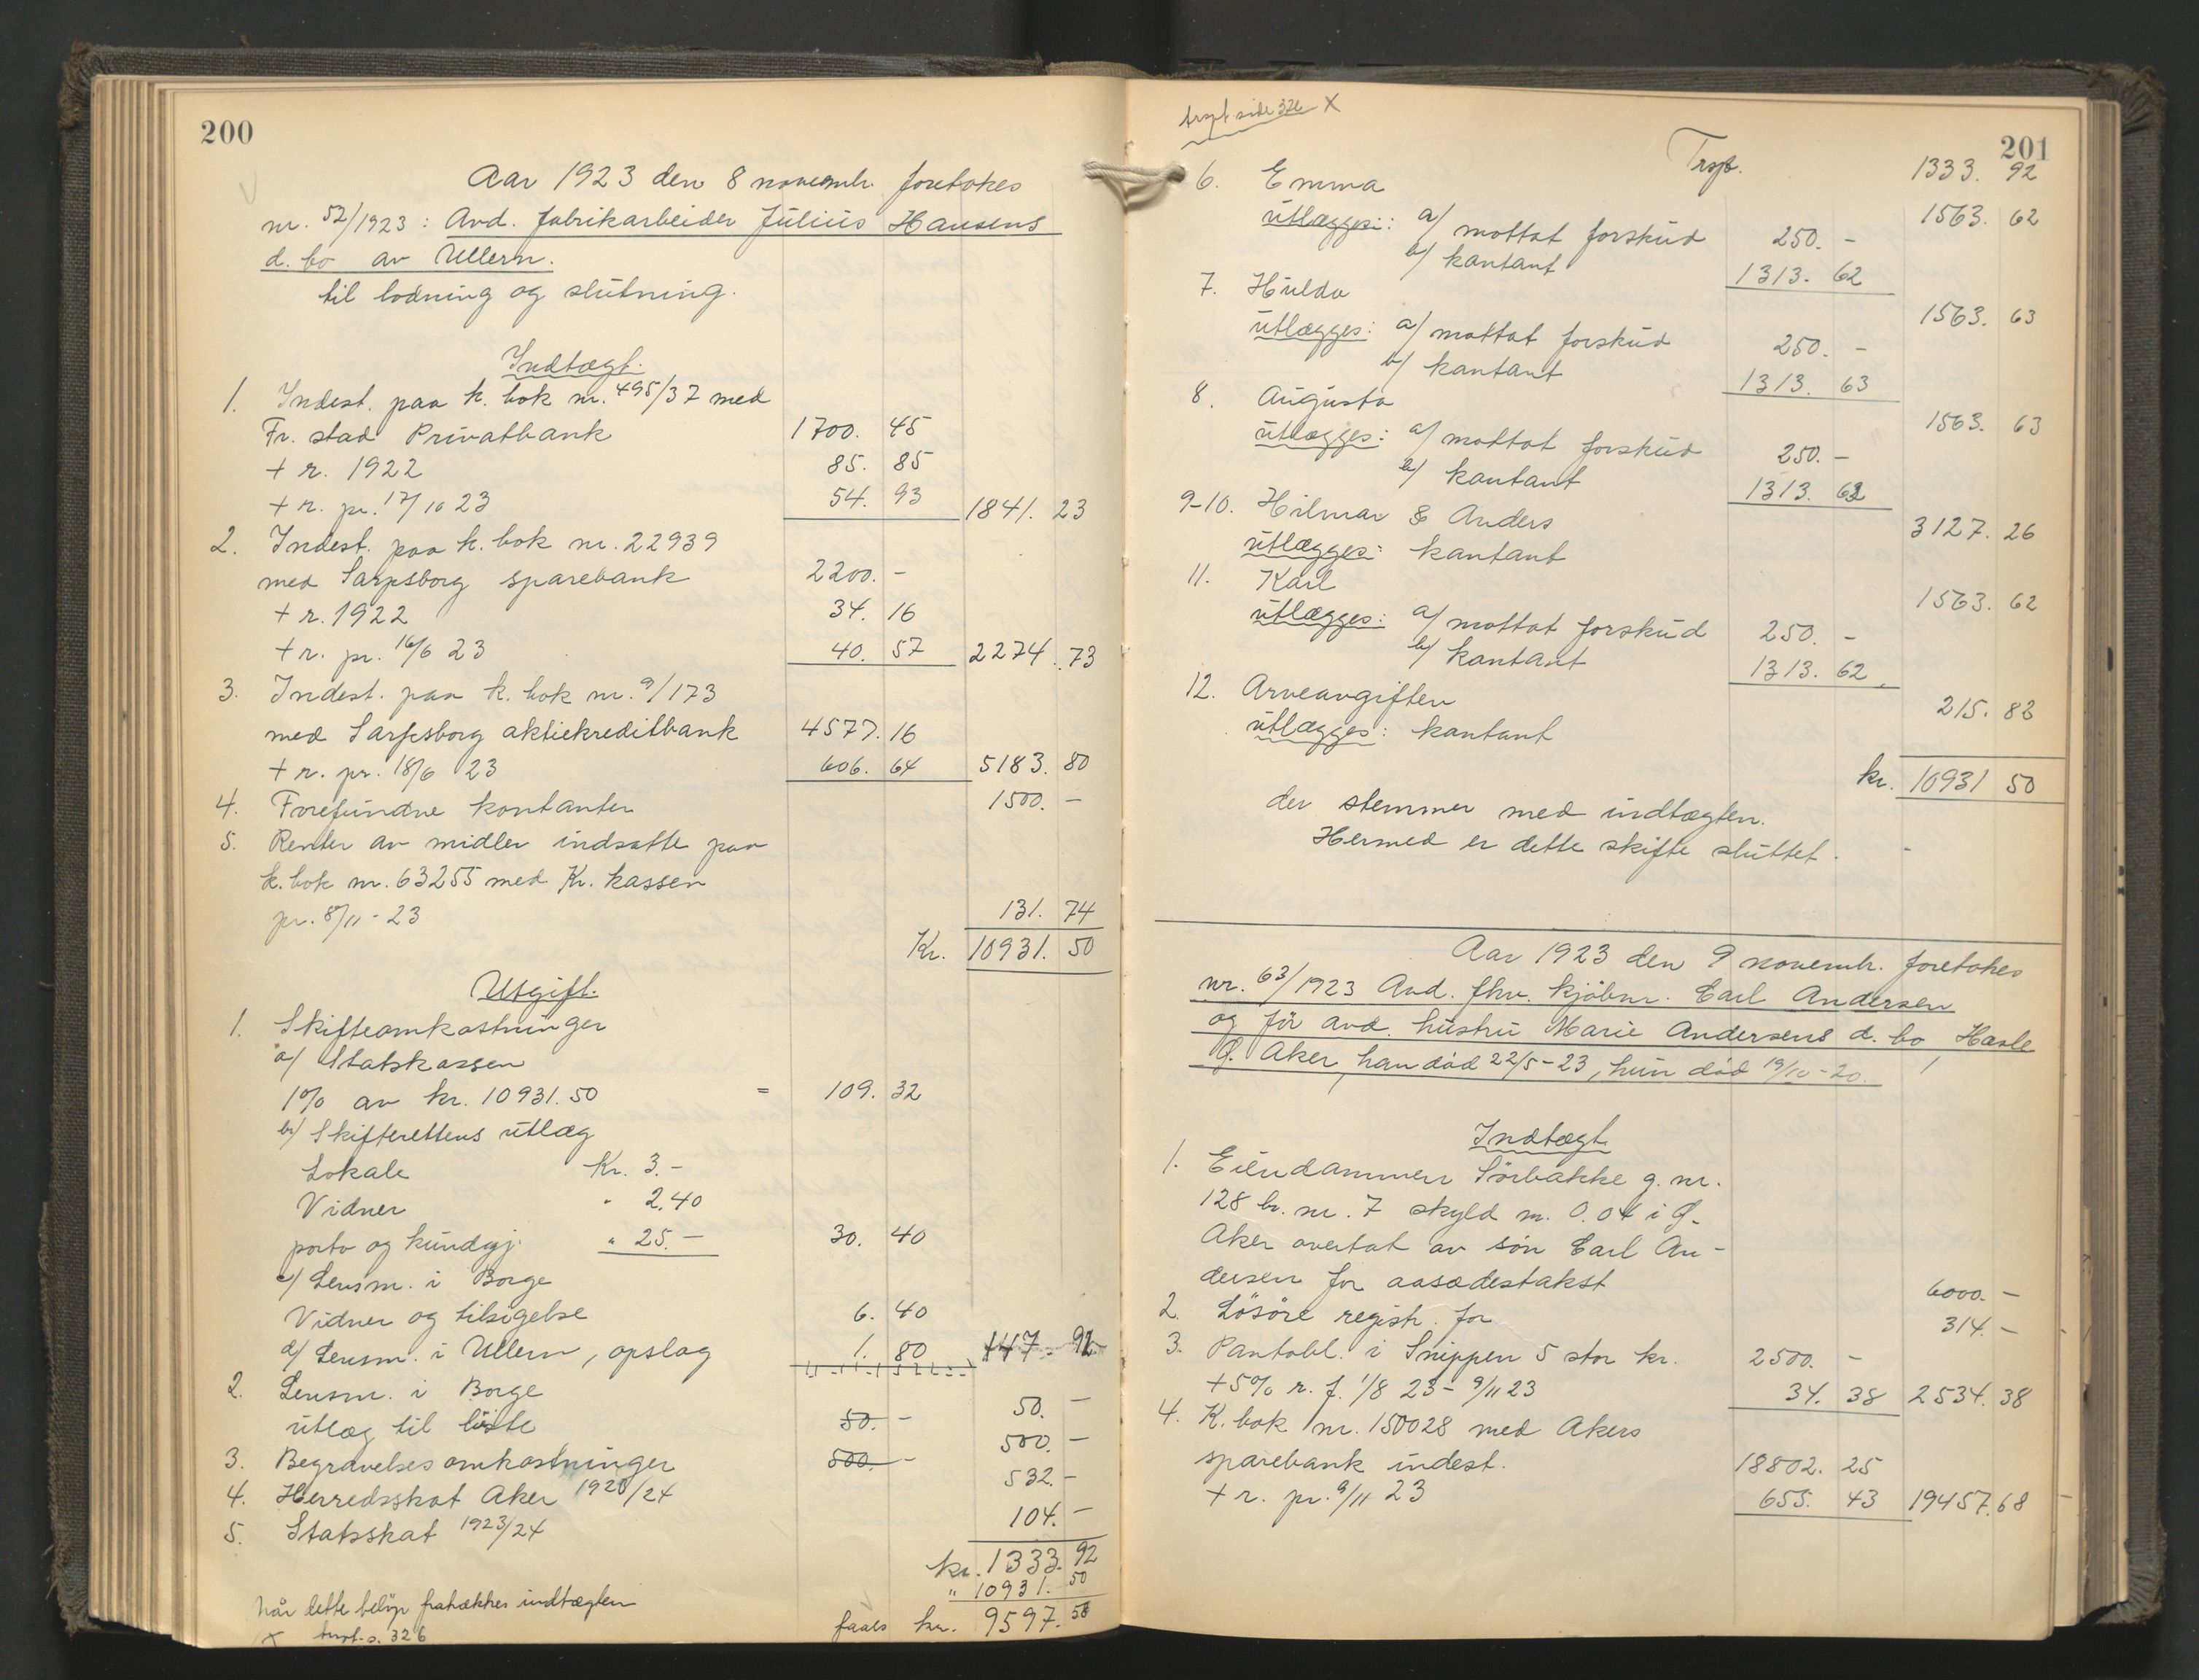 200
Aar 1923 den 8 novembr. foretokes
nr. 52/1923 : Avd. fabrikarbeider Julius Hansens
d. bo av Ullern.
til lodning og slutning.
Indtægt.
1. Indest. paa k. bok nr. 495/37 med
Fr. stad Privatbank 1700. 45
+ r. 1922 85. 85
+ r. pr. 17/10 23 54. 93 1841. 23
2. Indest. paa k. bok nr. 22939
med Sarpsborg sparebank 2200. -
+ r. 1922 34. 16
+ r. pr. 16/6 23 40. 57 2274. 73
3. Indest. paa k. bok nr. 9/173
med Sarpsborg aktiekreditbank 4577. 16
+ r. pr. 18/6 23 606. 64 5183. 80
4. Forefundne kontanter 1500. -
5. Renter av midler indsatte paa
k. bok nr. 63255 med Kr. kassen
pr. 8/11 - 23 131. 74
Kr. 10931. 50
Utgift.
1. Skifteomkostninger
a/ Statskassen
1% av kr. 10931.50 = 109. 32
b/ Skifterettens utlæg
Lokale Kr. 3.-
Vidner " 2.40
porto og kundgj. " 25.- 30. 40
c/ Lensm. i Borge
Vidner og tilsigelse 6. 40
d/ Lensm. i Ullern, opslag 1. 80 147. 92
2. Lensm. i Borge
utlæg til liste 50. - 50. -
3. Begravelsesomkostninger 500. - 500. -
4. Herredsskat Aker 1923/24 532. -
5. Statsskat 1923/24 104. -
kr. 1333. 92
" 10931. 50
Når dette beløp fratrækkes indtægten
faaes kr. 9597. 58
X trspt. s. 326
trspt side 326 X
201
Trsp. 1333. 92
6. Emma 1563. 62
utlægges: a/ mottat forskud 250. -
b/ kontant 1313. 62
7. Hulda 1563. 63
utlægges: a/ mottat forskud 250. -
b/ kontant 1313. 63
8. Augusta 1563. 63
utlægges: a/ mottat forskud 250. -
b/ kontant 1313. 63
9-10. Hilmar & Anders 3127. 26
utlægges: kontant
11. Karl 1563. 62
utlægges: a/ mottat forskud 250. -
b/ kontant 1313. 62
12. Arveavgiften 215. 82
utlægges: kontant
kr. 10931 50
der stemmer med indtægten.
Hermed er dette skifte sluttet.
Aar 1923 den 9 novembr. foretokes
nr. 63/1923 Avd. fhv. kjøbm. Carl Andersen
og før avd. hustru Marie Andersens d. bo Hasle
Ø. Aker, han død 22/5 - 23, hun død 19/10 - 20.
Indtægt
1. Eiendommen Sörbakke g. nr.
128 br. nr. 7 skyld m. 0.04 i Ø.
Aker overtat av søn Carl An-
dersen for aasædestakst 6000. -
2. Løsøre registr. for 314. -
3. Pantobl. i Snippen 5 stor kr. 2500. -
+ 5% r. f. 1/8 23 - 9/11 23 34. 38 2534. 38
4. K. bok nr. 150028 med Akers
sparebank indest. 18802. 25
+ r. pr. 9/11 23 655. 43 19457. 68